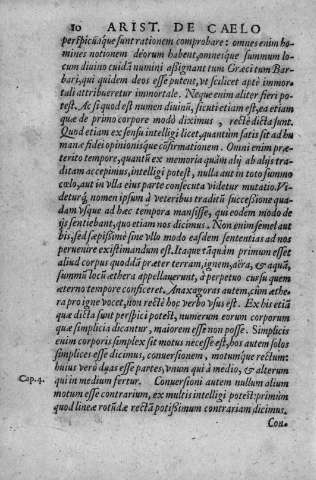 10 ARIST. DE CAELO
perspicuæque sunt rationem comprobare: omnes enim ho-
mines notionem deorum habent, omnesque summum lo-
cum diuino cuidã numini assignant tum Græci tum Bar-
bari, qui quidem deos esse putent, vt scilicet aptè immor-
tali attribueretur immortale. Neque enim aliter fieri po-
test. Ac si quod est numen diuinũ, sicuti etiam est, ea etiam
quæ de primo corpore modò diximus, rectè dicta sunt.
Quod etiam ex sensu intelligi licet, quantùm satis sit ad hu
manæ fidei opinionisque cõfirmationem. Omni enim præ-
terito tempore, quantũ ex memoria quàm alij ab alijs tra-
ditam accepimus, intelligi potest, nulla aut in toto summo
cœlo, aut in vlla eius parte consecuta videtur mutatio. Vi-
deturq́; nomen ipsum à veteribus traditũ successione qua-
dam vsque ad hæc tempora mansisse, qui eodem modo de
ijs sentiebant, quo etiam nos dicimus. Non enim semel aut
bis, sed sæpissimè sine vllo modo easdem sententias ad nos
peruenire existimandum est. Itaque tãquàm primum esset
aliud corpus quoddã præter terram, ignem, aëra, & aquã,
summũ locũ æthera appellauerunt, à perpetuo cursu quem
æterno tempore conficeret. Anaxagoras autem, cùm æthe-
ra pro igne vocet, non rectè hoc verbo vsus est. Ex his etiã
quæ dicta sunt perspici potest, numerum eorum corporum
quæ simplicia dicantur, maiorem esse non posse. Simplicis
enim corporis simplex sit motus necesse est, hos autem solos
simplices esse dicimus, conuersionem, motumque rectum:
huius verò duas esse partes, vnum qui à medio, & alterum
Cap. 4. qui in medium fertur. Conuersioni autem nullum alium
motum esse contrarium, ex multis intelligi potest: primùm
quod lineæ rotũdæ rectã potissimùm contrariam dicimus.
Con-